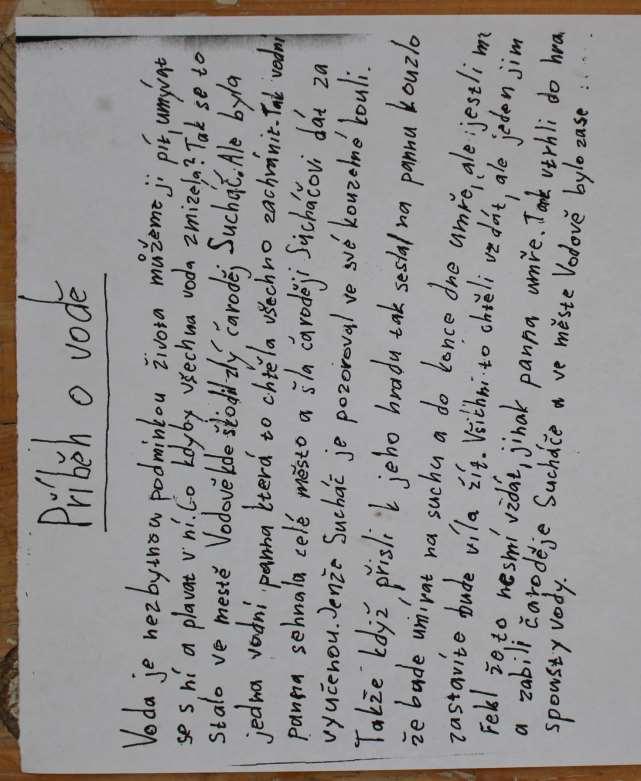 Příběh o vodě
Voda je nezbytnou podmínkou života můžeme ji pít, umývat
se s ní a plavat v ní. Co kdyby všechna voda zmizela? Tak se to
stalo ve mestě Vodově kde škodil zlý čaroděj Sucháč. Ale byla
jedna vodní panna která to chtěla všechno zachránit. Tak vodní
panna sehnala celé město a šla čaroději Sucháčovi dát za
vyučenou. Jenže Sucháč je pozoroval ve své kouzelné kouli.
Takže když přisli k jeho hradu tak seslal na pannu kouzlo
že bude umírat na suchu a do konce dne umře, ale jestli m
zastavíte bude víla žít. Všichni to chtěli vzdát, ale jeden jim
řekl že to nesmí vzdát, jinak panna umře. Tak vtrhli do hra
a zabili čaroděje Sucháče a ve měste Vodově bylo zase
spousty vody.